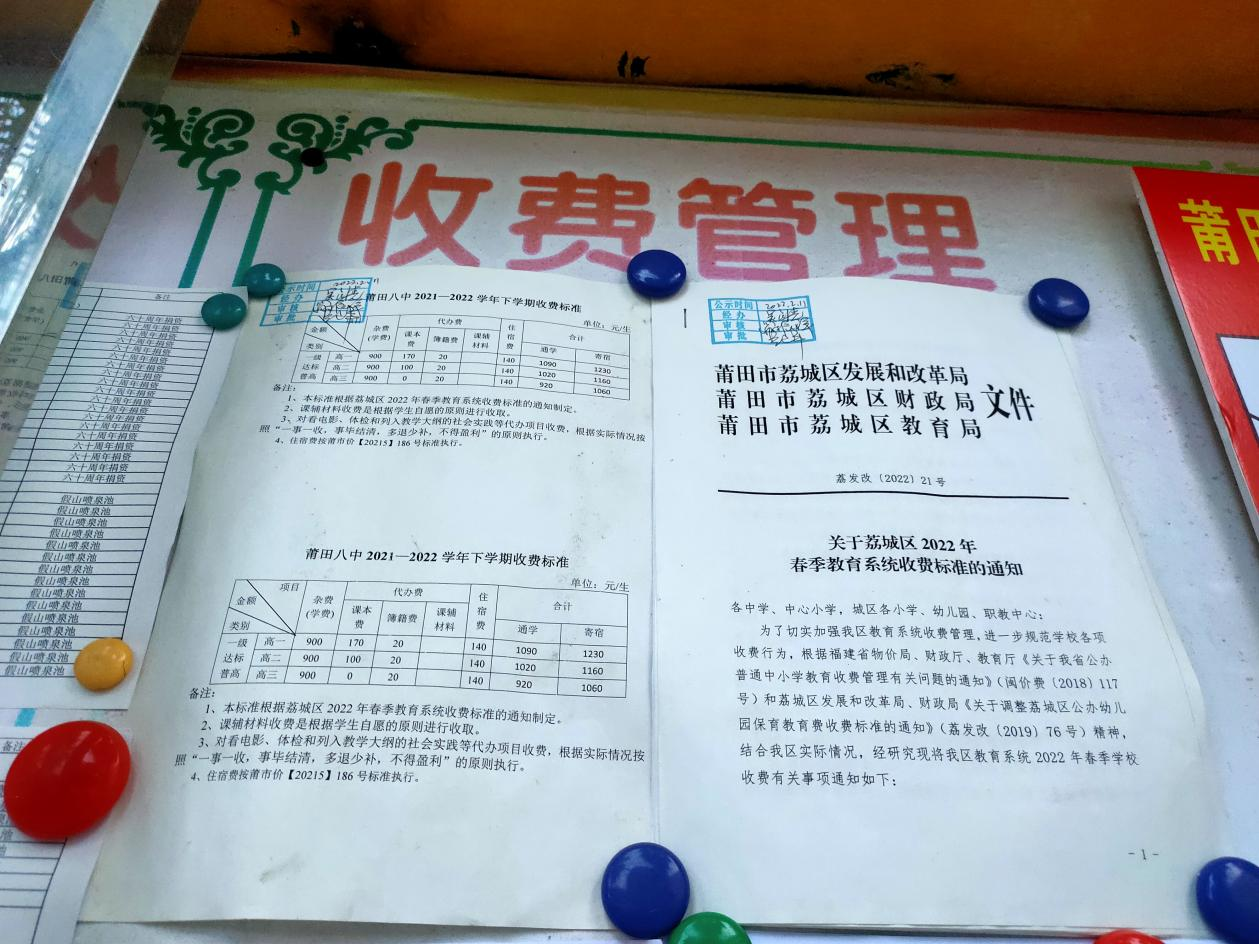 收费管理
莆田
备注
六十周年捐资
六十周年捐资
六十周年捐资
六十周年捐资
六十周年捐资
六十周年捐资
六十周年捐资
六十周年捐资
六十周年捐资
六十周年捐资
六十周年捐资
六十周年捐资
六十周年捐资
六十周年捐资
六十周年捐资
六十周年捐资
假山喷泉池
假山喷泉池
假山喷泉池
假山喷泉池
假山喷泉池
假山喷泉池
假山喷泉池
假山喷泉池
假山喷泉池
假山喷泉池
假山喷泉池
假山喷泉池
假山喷泉池
备注
公示时间
经办
审核
审批
莆田八中 2021—2022 学年下学期收费标准
单位：元/生
金额 类别 杂费(学费) 代办费 住宿费 合计
课本费 簿籍费 课辅材料 通学 寄宿
一级 高一 900 170 20 140 1090 1230
达标 高二 900 100 20 140 1020 1160
普高 高三 900 0 20 140 920 1060
备注：
1、本标准根据荔城区 2022 年春季教育系统收费标准的通知制定。
2、课辅材料收费是根据学生自愿的原则进行收取。
3、对看电影、体检和列入教学大纲的社会实践等代办项目收费，根据实际情况按
照“一事一收，事毕结清，多退少补，不得盈利”的原则执行。
4、住宿费按莆市价【20215】186 号标准执行。
莆田八中 2021—2022 学年下学期收费标准
单位：元/生
项目 金额 类别 杂费(学费) 代办费 住宿费 合计
课本费 簿籍费 课辅材料 通学 寄宿
一级 高一 900 170 20 140 1090 1230
达标 高二 900 100 20 140 1020 1160
普高 高三 900 0 20 140 920 1060
备注：
1、本标准根据荔城区 2022 年春季教育系统收费标准的通知制定。
2、课辅材料收费是根据学生自愿的原则进行收取。
3、对看电影、体检和列入教学大纲的社会实践等代办项目收费，根据实际情况按
照“一事一收，事毕结清，多退少补，不得盈利”的原则执行。
4、住宿费按莆市价【20215】186 号标准执行。
公示时间 2022.2.11
经办
审核
审批
莆田市荔城区发展和改革局
莆田市荔城区财政局 文件
莆田市荔城区教育局
荔发改〔2022〕21 号
关于荔城区 2022 年
春季教育系统收费标准的通知
各中学、中心小学，城区各小学、幼儿园、职教中心：
为了切实加强我区教育系统收费管理，进一步规范学校各项
收费行为，根据福建省物价局、财政厅、教育厅《关于我省公办
普通中小学教育收费管理有关问题的通知》（闽价费〔2018〕117
号）和荔城区发展和改革局、财政局《关于调整荔城区公办幼儿
园保育教育费收费标准的通知》（荔发改〔2019〕76 号）精神，
结合我区实际情况，经研究现将我区教育系统 2022 年春季学校
收费有关事项通知如下：
- 1 -